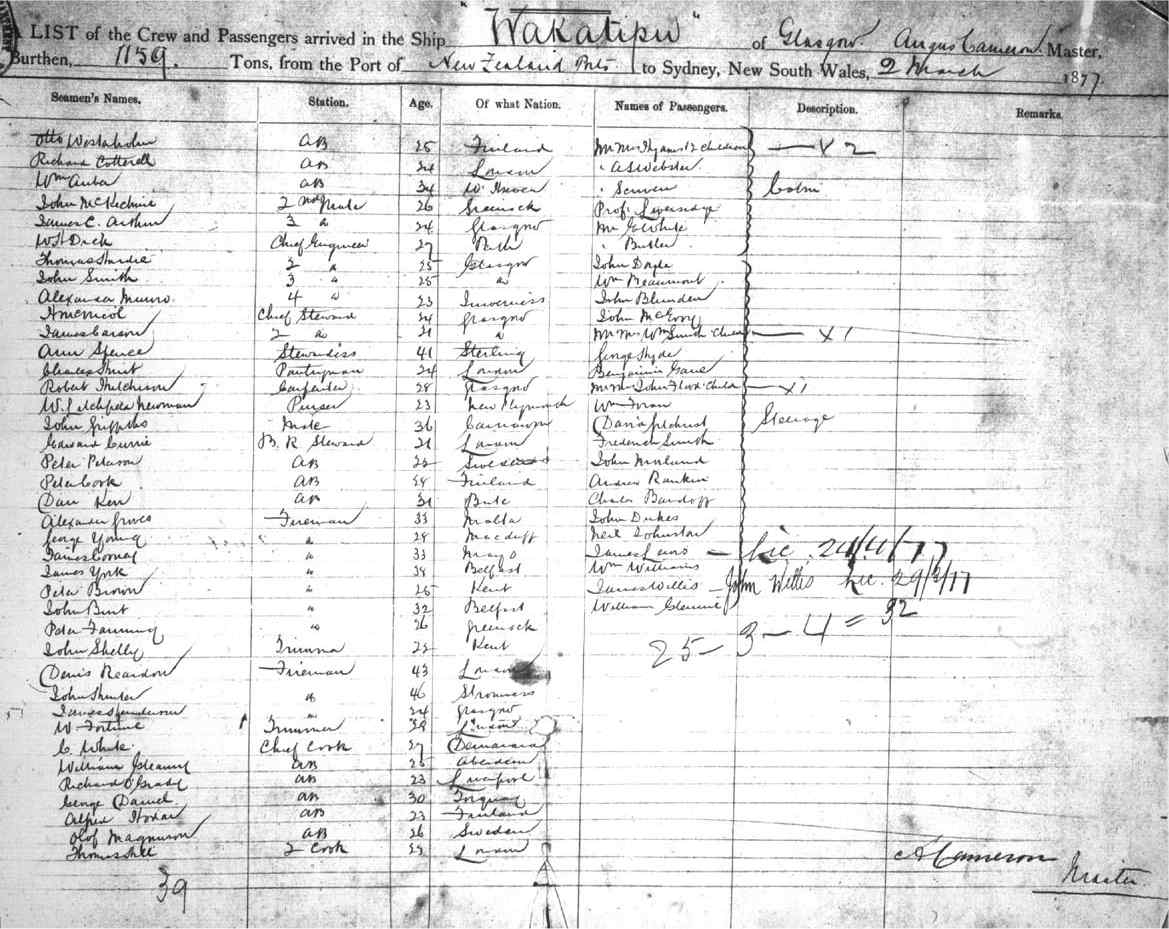 "Wakatipu"
A LIST of the Crew and Passengers arrived in the Ship of Glasgow. Angus Cameron Master,
Burthen, 1159. Tons, from the Port of New Zealand Pts to Sydney, New South Wales, 2 March 1877
Seamen's Names. Station. Age. Of what Nation. Names of Passengers. Description. Remarks.
Otto AB 25 Finland Mr Mrs 2 Children — X 2
Richard Cotterell AB 24 London " A S Webster
Wm AB 34 W. Haven " Scriven Cabin
John McKechnie 2nd Mate 26 Greenock Prof. Liversidge
James C. Arthur 3 " 24 Glasgow Mr G White
W H Dick Chief Engineer 27 " Butler
Thomas 2 " 25 Glasgow John Doyle
John Smith 3 " 25 " Wm Beaumont
Alexander Munro 4 " 23 Inverness John Blunden
Chief Steward 24 Glasgow John McEvoy
James Carson 2 " 21 " Mr Mrs Wm Smith Child — X 1
Ann Spence Stewardess 41 Sterling George Hyde
Charles Pantryman 24 London Benjamin
Robert Hutchison Carpenter 28 Glasgow Mr Mrs John Child — X 1
W. Newman Purser 23 New Plymouth Wm
John Griffiths Mate 36 Carnarvon David Gilchrist Steerage
Edward Currie B. R Steward 21 London Frederick Smith
Peter Peterson AB 22 Sweden John Morland
Peter Cook AB 28 Finland Andrew Rankin
Dan Kerr AB 31 Bute Charles
Alexander Groves Fireman 33 Malta John Dukes
George Young " 28 Macduff Neil Johnston
James " 33 Mayo James Lewis — 24/4/77
James York " 38 Belfast Wm Williams
Peter Brown " 25 Kent James Willis — John Willis 77
John " 32 Belfast William
Peter Fanning " 26 Greenock 25 – 3 – 4 = 32
John Shelly Trimmer 22 Kent
Denis Reardon Fireman 43 London
John Hunter " 46 Stromness
James Henderson " 24 Glasgow
W Fortune Trimmer London
C. White Chief Cook 27 Demarara
William AB 25 Aberdeen
Richard O'Grady AB 23 Liverpool
George Daniel AB 30 Torquay
Alfred AB 23 Finland
Olof Magnuson AB 26 Sweden
Thomas 2 Cook London
A Cameron
Master
39